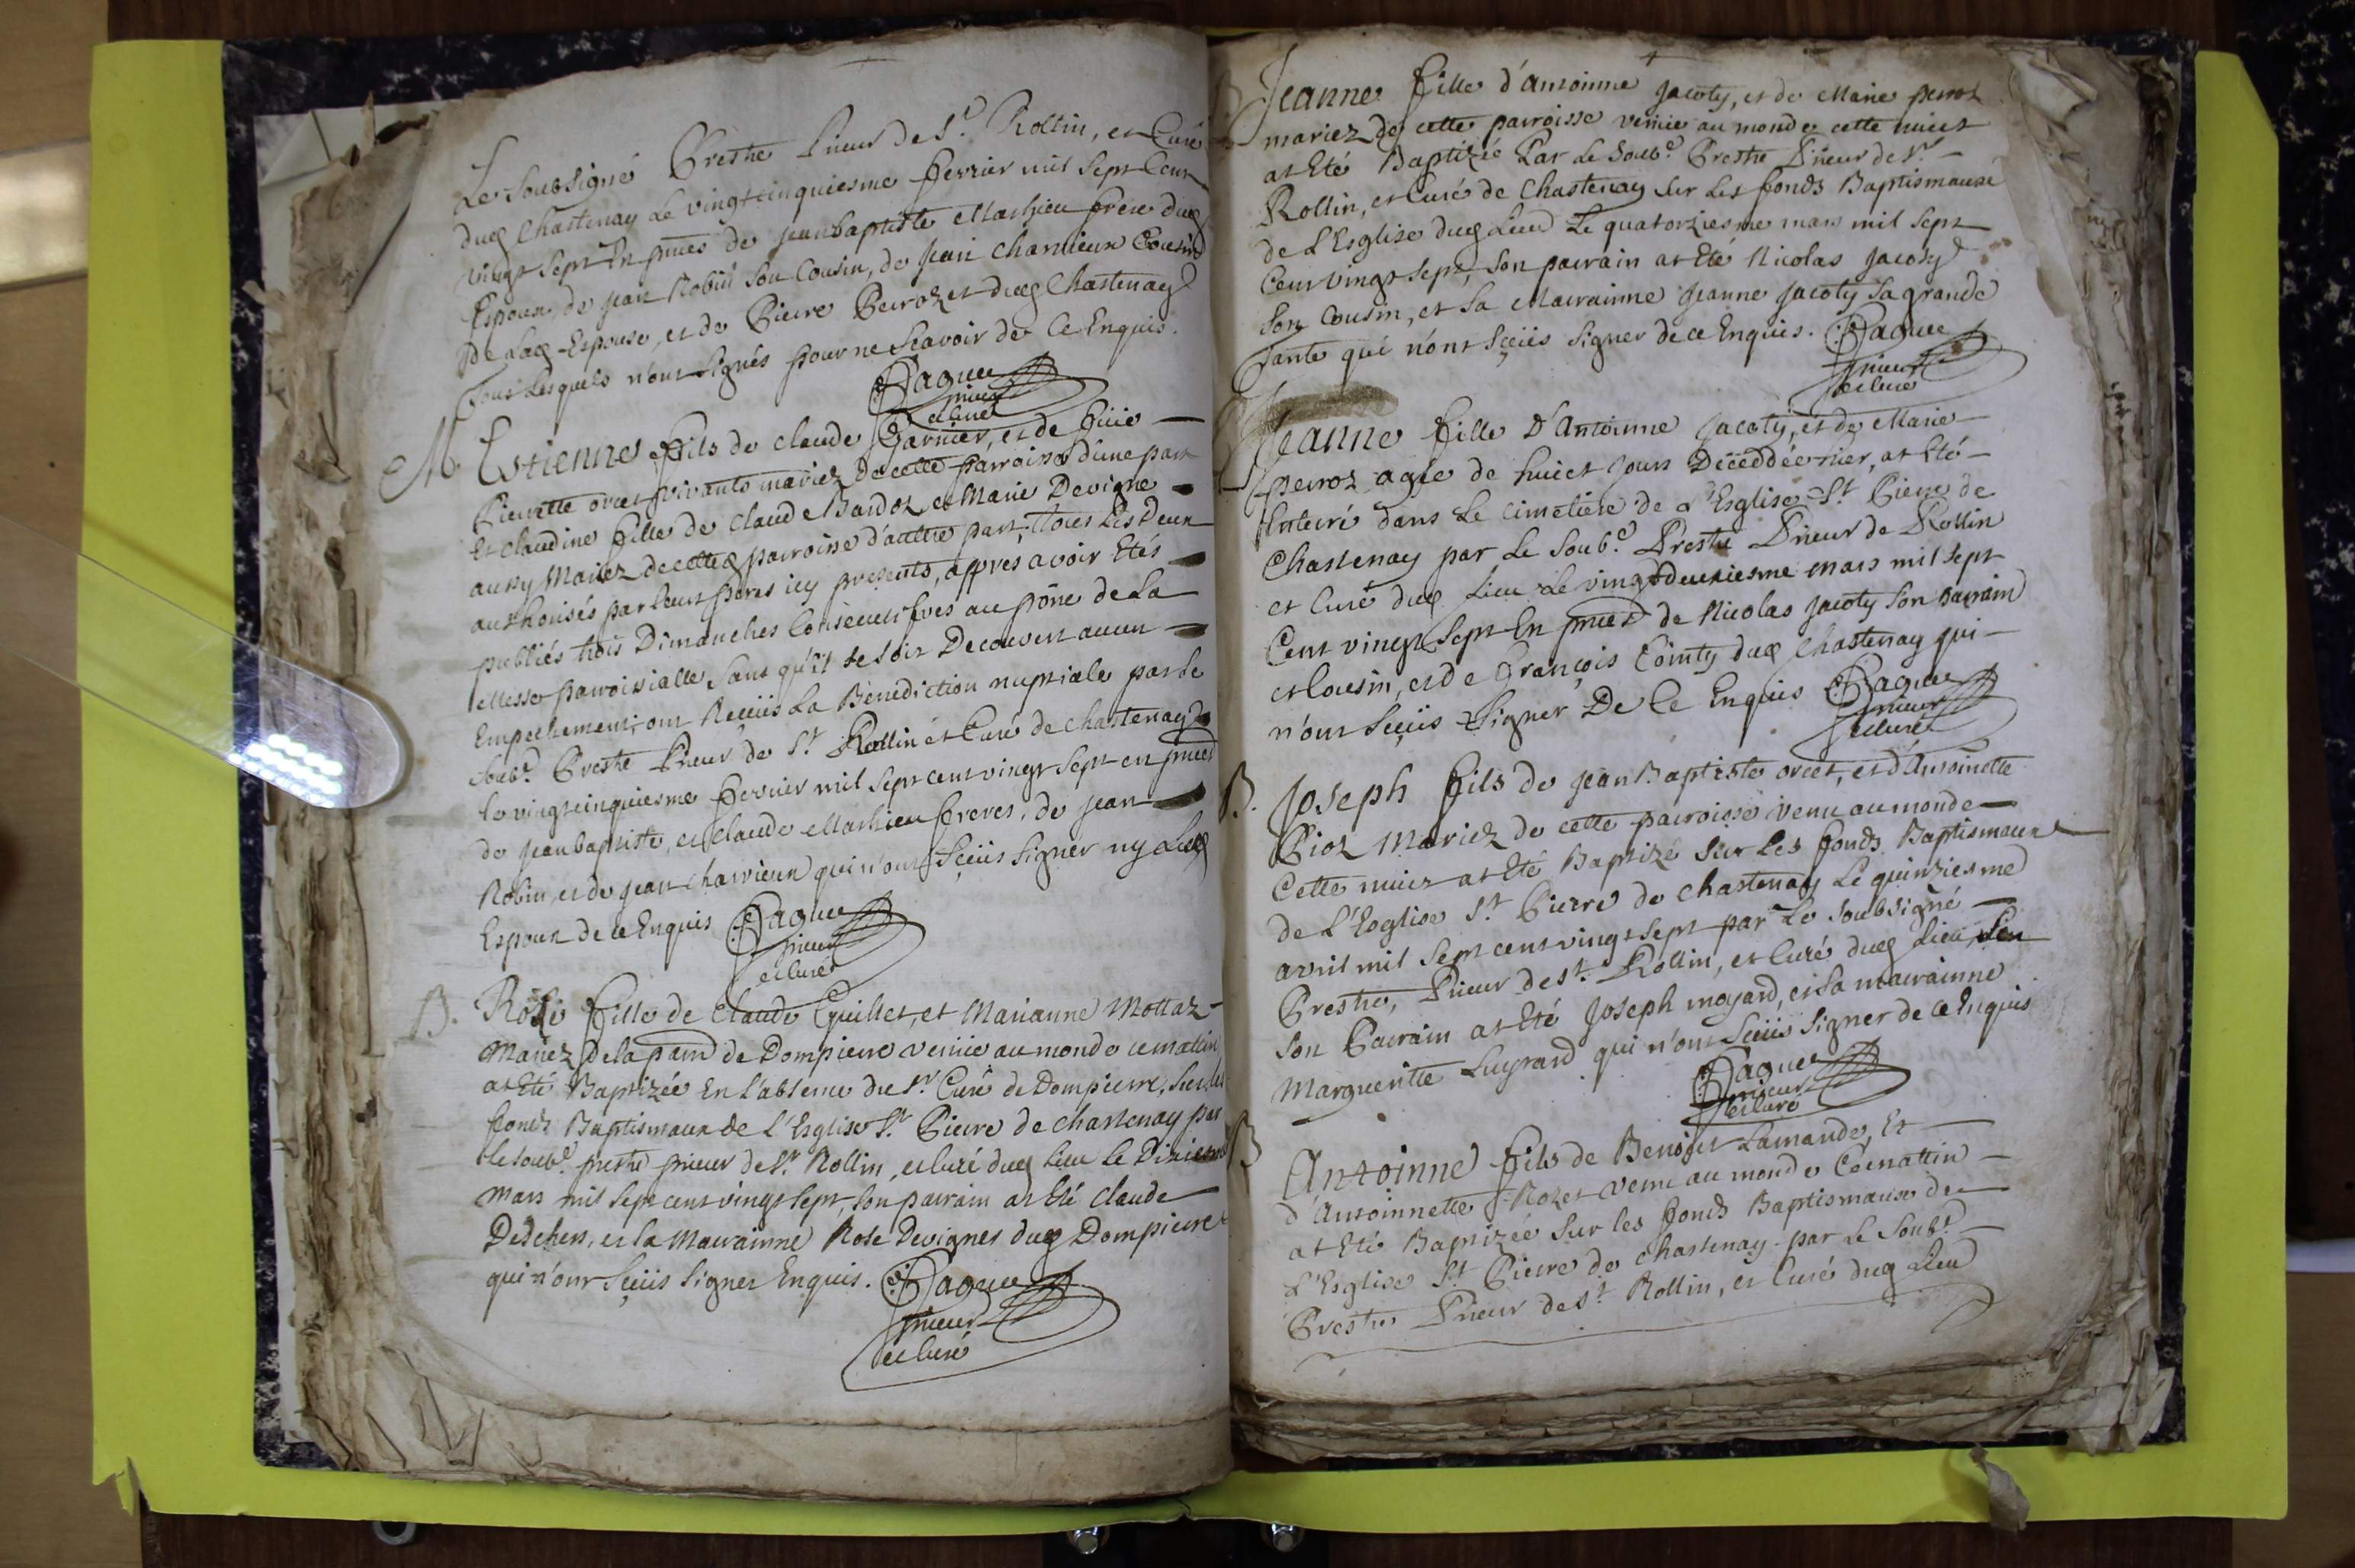 Le Soubsigné Prestre Prieur de St. Rollin, et Curé
dud Chastenay Le vingtcinquiesme fevrier mil Sept Cent
vingt Sept En pnces de Jeanbaptiste Mathieu frere dud
Espoux, de Jean Robin Son Cousin, de Jean Charvieux Cousin
de Lad Espouse, et de Pierre Perroz et dud Chastenay
Tous Lesquels n'ont Signés pour ne Scavoir de Ce Enquis.
Paguee
prieur
et Curé
M. Estienne fils de Claude Garnier, et de
Pierrette orcet vivants mariez de cette parroisse d'une part
Et Claudine fille de Claude Bardoz, et Marie Devigne
aussy Mariez de cetted parroisse d'auttre part, Tous Les Deux
authorisés par leurs peres icy presents, appres avoir Etés
publiés trois Dimanches Consecutifves au pône de La
Messe parroissialle Sans qu'il se soit Decouvert aucun
Empechement, ont Reçeüs La Benediction nuptiale par le
Soubd. Prestre Prieur de St Rollin et Curé de Chastenay
le vingtcinquiesme fevrier mil sept cent vingt sept en pnces
de Jeanbaptiste, et Claude Mathieu freres, de Jean
Robin, et de Jean charvieux qui n'ont Sçeüs Signer ny Led
Espoux de ce Enquis Paguee
prieur
et Curé
B. Rose fille de Claude Guillet, et Marianne Mottaz
Mariez de la parr de Dompierre venüe au monde ce mattin
at Eté Baptizée En L'absence du Sr Curé de Dompierre, Sur les
fonds Baptismaux de L'Esglise St Pierre de chastenay par
le Soubd prestre prieur de St Rollin, et Curé dud Lieu Le Dixiesme
Mars mil Sept cent vingt Sept, Son parrain at Eté Claude
Dedchers, et la Marrainne Rose Devignes dud Dompierre
qui n'ont Sçeüs Signer Enquis. Paguee
prieur
et Curé
B Jeanne fille d'Antoinne Jacoty, et de Marie perroz
mariez de cette parroisse venüe au monde cette nuict
at Eté Baptizée Par Le Soubd Prestre Prieur de St
Rollin, et Curé de Chastenay Sur Les fonds Baptismaux
de L'Esglise dud Lieu Le quatorziesme mars mil Sept
Cent vingt Sept, Son parrain at Eté Nicolas Jacoty
Son Cousin, et Sa Marrainne Jeanne Jacoty Sa grande
Tante qui n'ont Sçeüs Signer de ce Enquis. Paguee
prieur
et Curé
Jeanne fille D'Antoinne Jacoty, et de Marie
Perroz agée de huict Jours Deceddée hier, at Eté
Enterré dans Le Cimetiere de L'Esglise St Pierre de
Chastenay par Le Soubd. Prestre Prieur de Rollin
et Curé dud Lieu Le vingtdeuxiesme mars mil Sept
Cent vingt Sept En pnces de Nicolas Jacoty Son parrain
et Cousin, et de François Comty dud Chastenay qui
n'ont Sçeüs Signer De Ce Enquis Paguee
prieur
et Curé
B. Joseph fils de Jean Baptiste orcet, et d'Antoinette
Pioz Mariez de cette parroisse Venu au monde
Cette nuict at Eté Baptizé Sur Les fonds Baptismaux
de L'Esglise St Pierre de Chastenay Le quinziesme
avril mil Sept cent vingt Sept par Le Soubsigné
Prestre, Prieur de St. Rollin, et Curé dud Lieu,
Son Parrain at Eté Joseph moyard, et Sa marrainne
Margueritte Lugrand qui n'ont Sçeüs Signer de ce Enquis
Paguee
prieur
et Curé
B Antoinne fils de Benoist Lamande, Et
d'Antoinnette Rozet venu au monde Ce mattin
at Eté Baptizée Sur les fonds Baptismaux de
L'Esglise St Pierre de Chastenay par Le Soubd
Prestre Prieur de St Rollin, et Curé dud Lieu